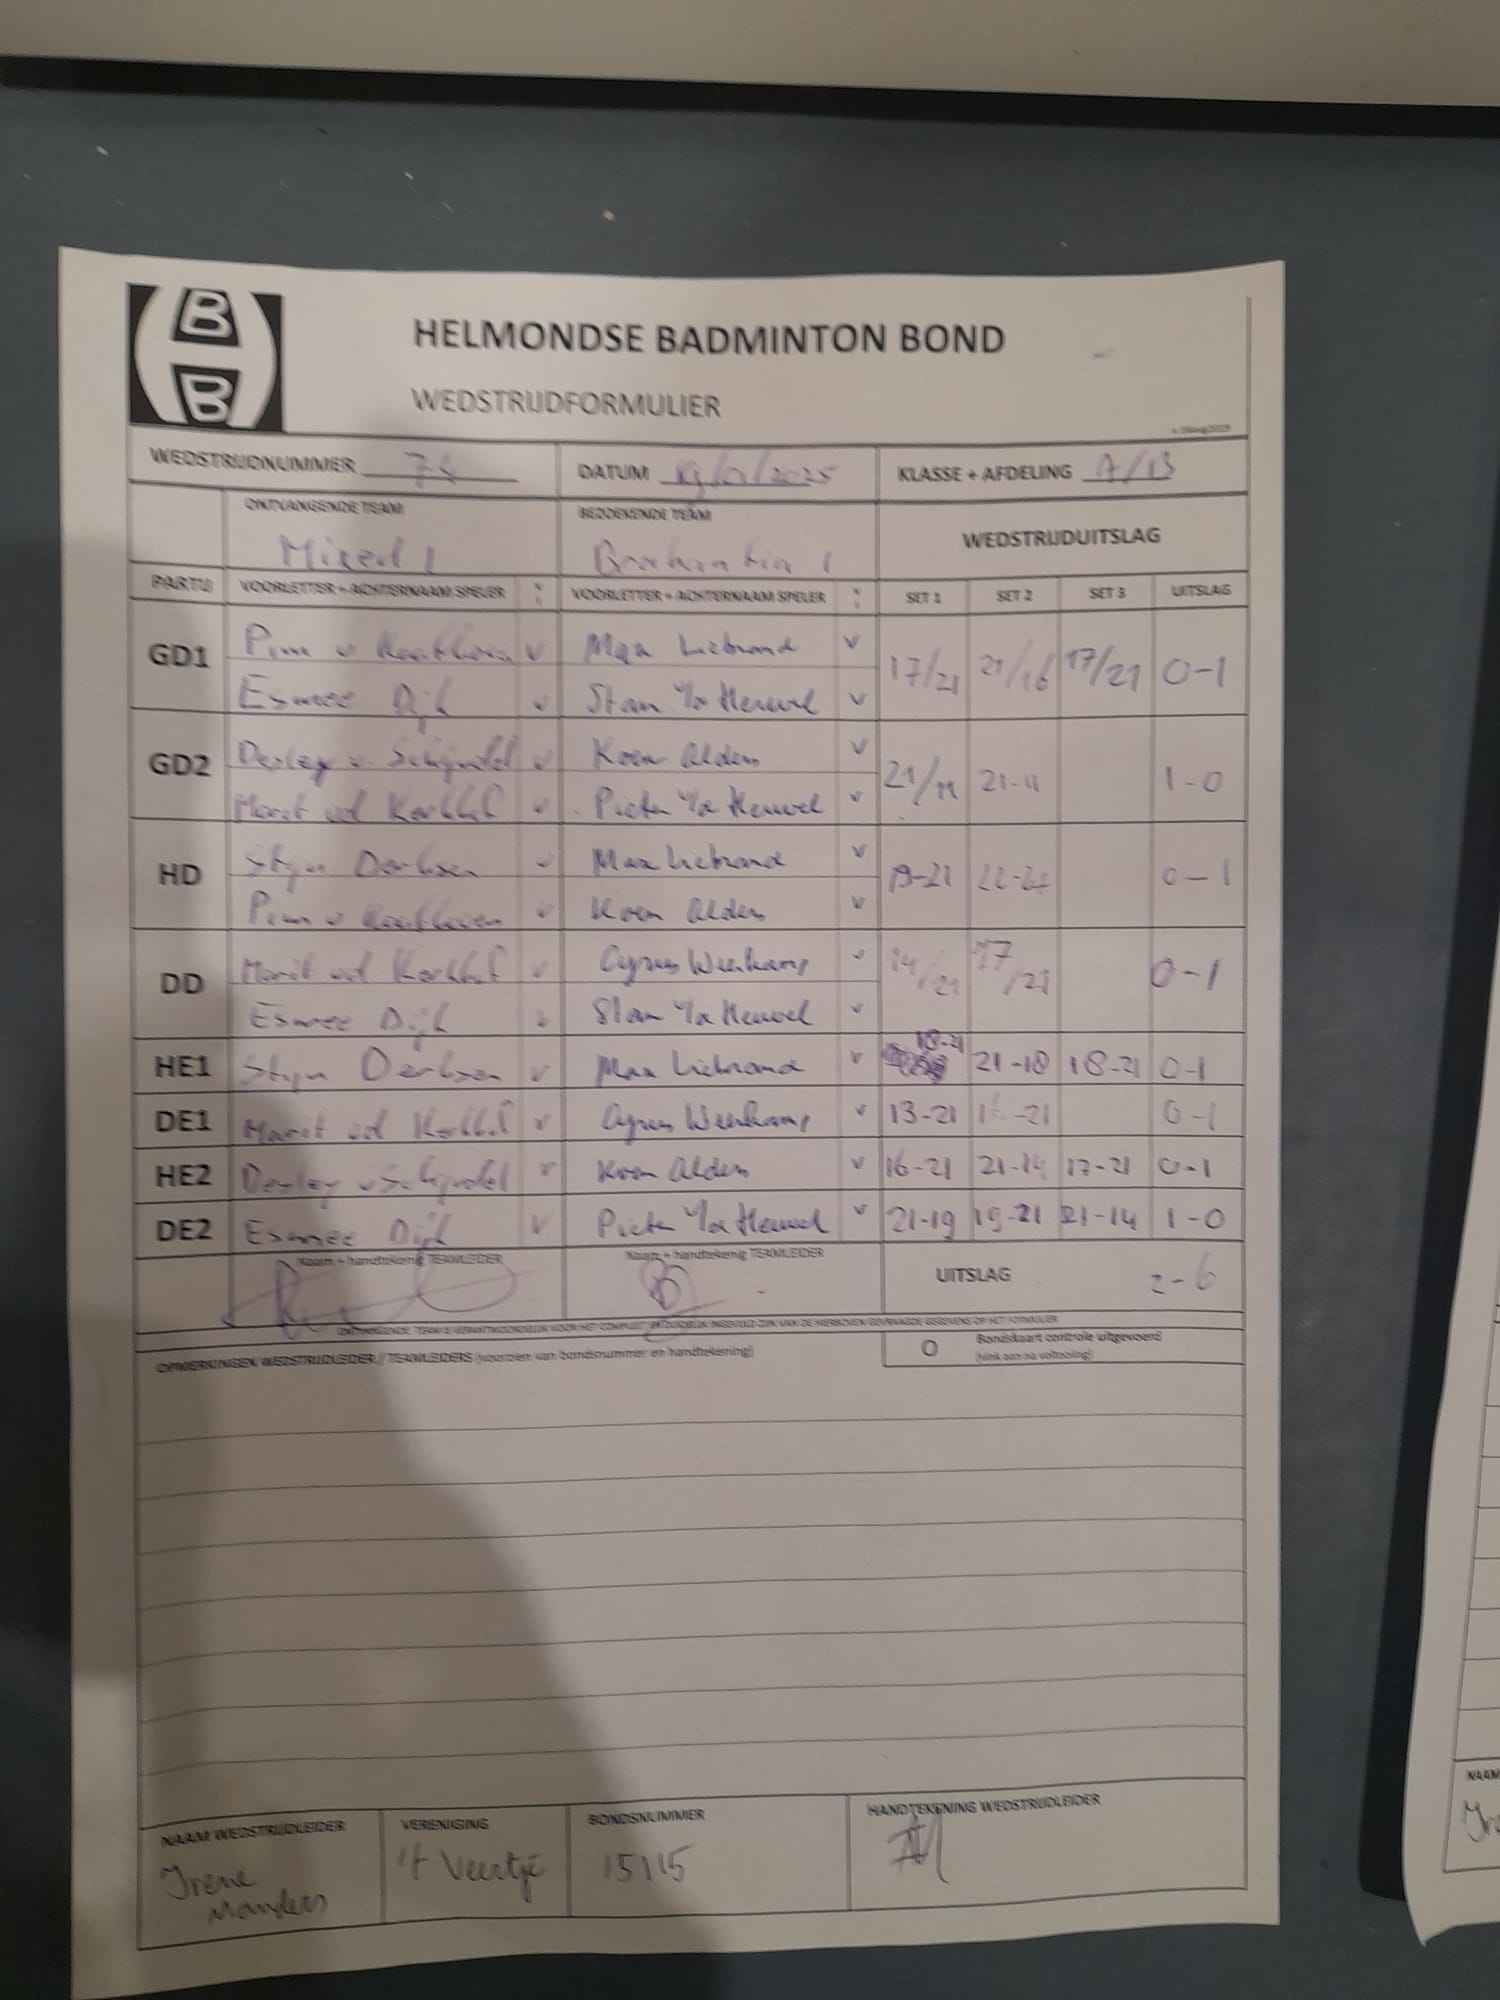 B
B
HELMONDSE BADMINTON BOND
WEDSTRIJDFORMULIER
WEDSTRIJDNUMMER
DATUM /2025
KLASSE + AFDELING A/B
ONTVANGENDE TEAM
BEZOEKENDE TEAM
WEDSTRIJDUITSLAG
Mixed 1
Brabantia 1
PARTIJ VOORLETTER + ACHTERNAAM SPELER VOORLETTER + ACHTERNAAM SPELER SET 1 SET 2 SET 3 UITSLAG
GD1 Pim v v Max Liebrand v 17/21 21/16 17/21 0-1
Esmee Dijk v Stan v/d Heuvel v
GD2 Desley v. Schijndel v Koen Alders v 21/11 21-11 1-0
Marit vd Kerkhof v Pieter v/d Heuvel v
HD Stijn Derksen v Max Liebrand v 19-21 22-24 0-1
Pim v v Koen Alders v
DD Marit vd Kerkhof v Cyrus v 14/21 17/21 0-1
Esmee Dijk v Stan v/d Heuvel v
HE1 Stijn Derksen v Max Liebrand v 18-21 21-18 18-21 0-1
DE1 Marit vd Kerkhof v Cyrus v 13-21 -21 0-1
HE2 Desley v Schijndel v Koen Alders v 16-21 21-14 17-21 0-1
DE2 Esmee Dijk v Pieter v/d Heuvel v 21-19 19-21 21-14 1-0
Naam + handtekenig TEAMLEIDER
Naam + handtekenig TEAMLEIDER
UITSLAG 2-6
OPMERKINGEN WEDSTRIJDLEIDER / TEAMLEIDERS (voorzien van bondsnummer en handtekening)
O Bondskaart controle uitgevoerd
(vink aan na voltooiing)
NAAM WEDSTRIJDLEIDER
VERENIGING
BONDSNUMMER
HANDTEKENING WEDSTRIJDLEIDER
Irene
Manders
't Veertje
15115
NAAM